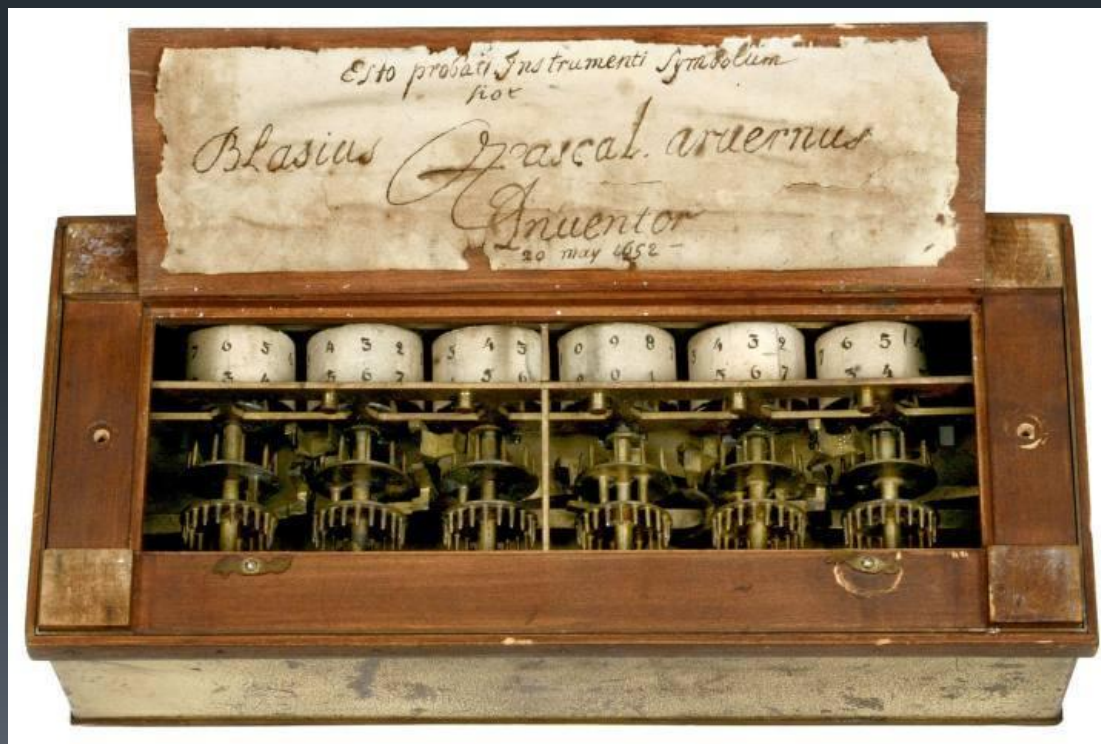 Esto probati Instrumenti Symbolum
hoc
Blasius Pascal. aruernus
Inuentor
20 may 1652 -
7 6 5 4 3 2 3 4 5 0 9 8 4 3 2 7 6 5
3 4 5 6 7 5 6 0 1 5 6 7 3 4